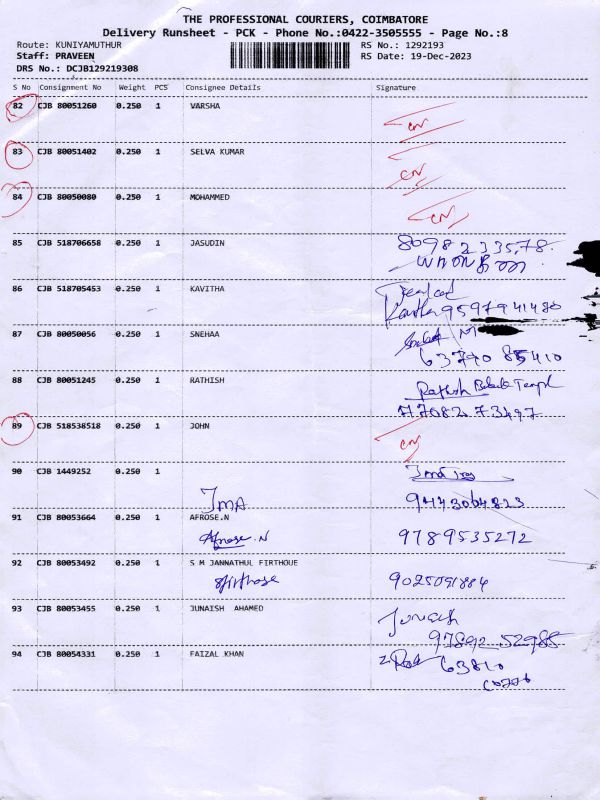 THE PROFESSIONAL COURIERS, COIMBATORE
Delivery Runsheet - PCK - Phone No.:0422-3505555 - Page No.:8
Route: KUNIYAMUTHUR RS No.: 1292193
Staff: PRAVEEN RS Date: 19-Dec-2023
DRS No.: DCJB129219308
S No Consignment No Weight PCS Consignee Details Signature
82 CJB 80051260 0.250 1 VARSHA
CN
83 CJB 80051402 0.250 1 SELVA KUMAR
CN
84 CJB 80050080 0.250 1 MOHAMMED
CN
85 CJB 518706658 0.250 1 JASUDIN 8098233578
86 CJB 518705453 0.250 1 KAVITHA
Kavitha 9597941480
87 CJB 80050056 0.250 1 SNEHAA
63740 85410
88 CJB 80051245 0.250 1 RATHISH Rathish
77082 73497
89 CJB 518538518 0.250 1 JOHN
CN
90 CJB 1449252 0.250 1
JMA 9443064823
91 CJB 80053664 0.250 1 AFROSE.N
Afrose.N 9789535272
92 CJB 80053492 0.250 1 S M JANNATHUL FIRTHOUE
Firthose 9025091884
93 CJB 80053455 0.250 1 JUNAISH AHAMED Junaish
97892 52985
94 CJB 80054331 0.250 1 FAIZAL KHAN 63810